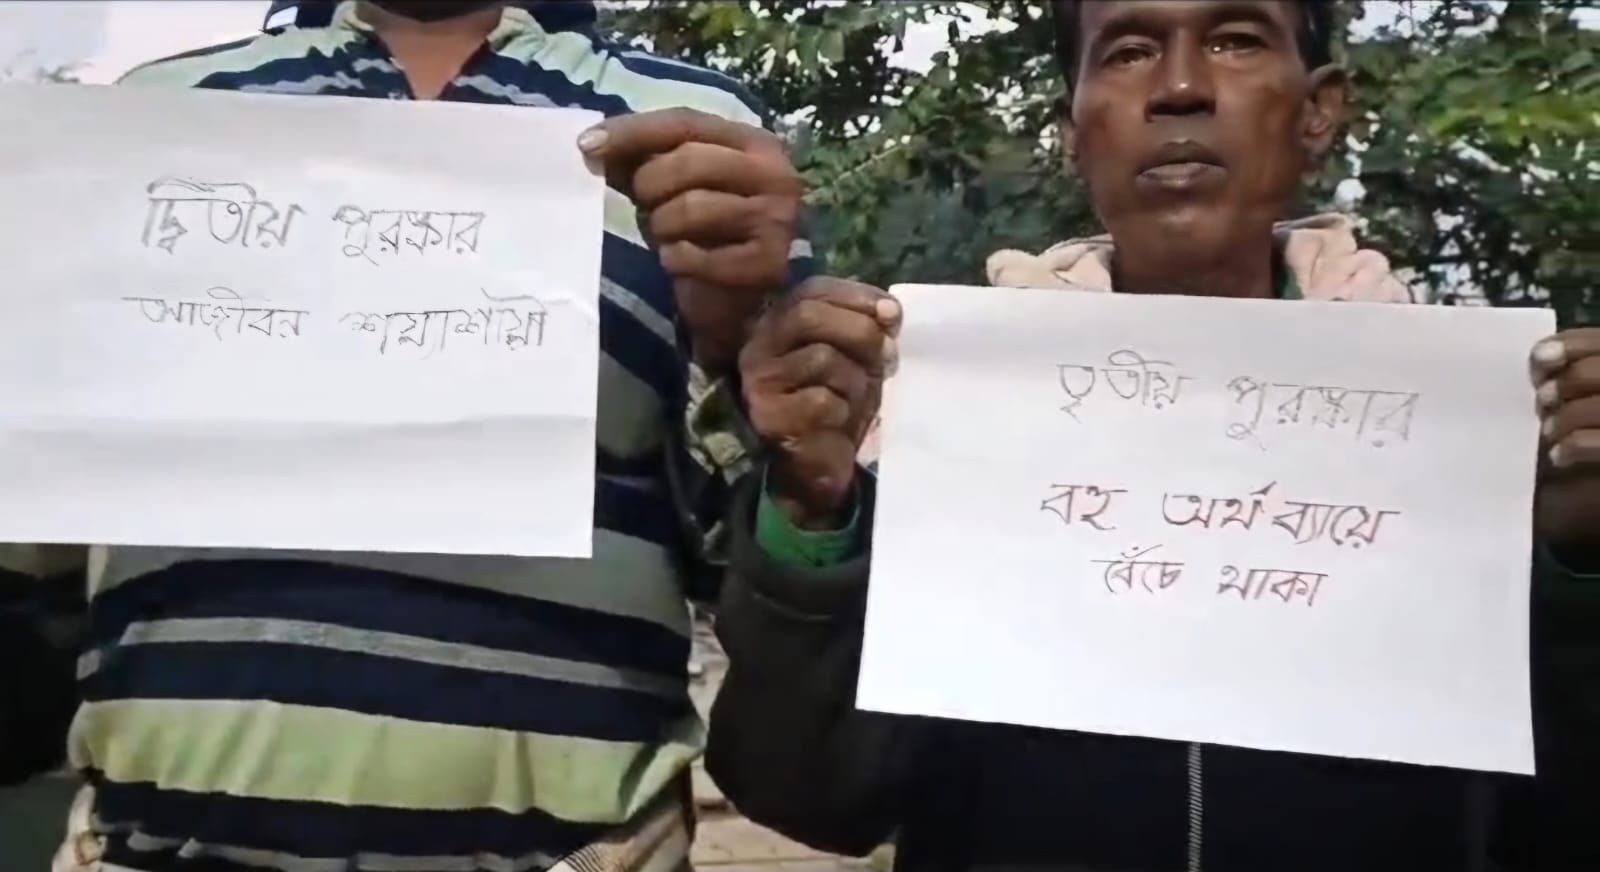 দ্বিতীয় পুরস্কার
আজীবন শয্যাশায়ী
তৃতীয় পুরস্কার
বহু অর্থ ব্যায়ে
বেঁচে থাকা